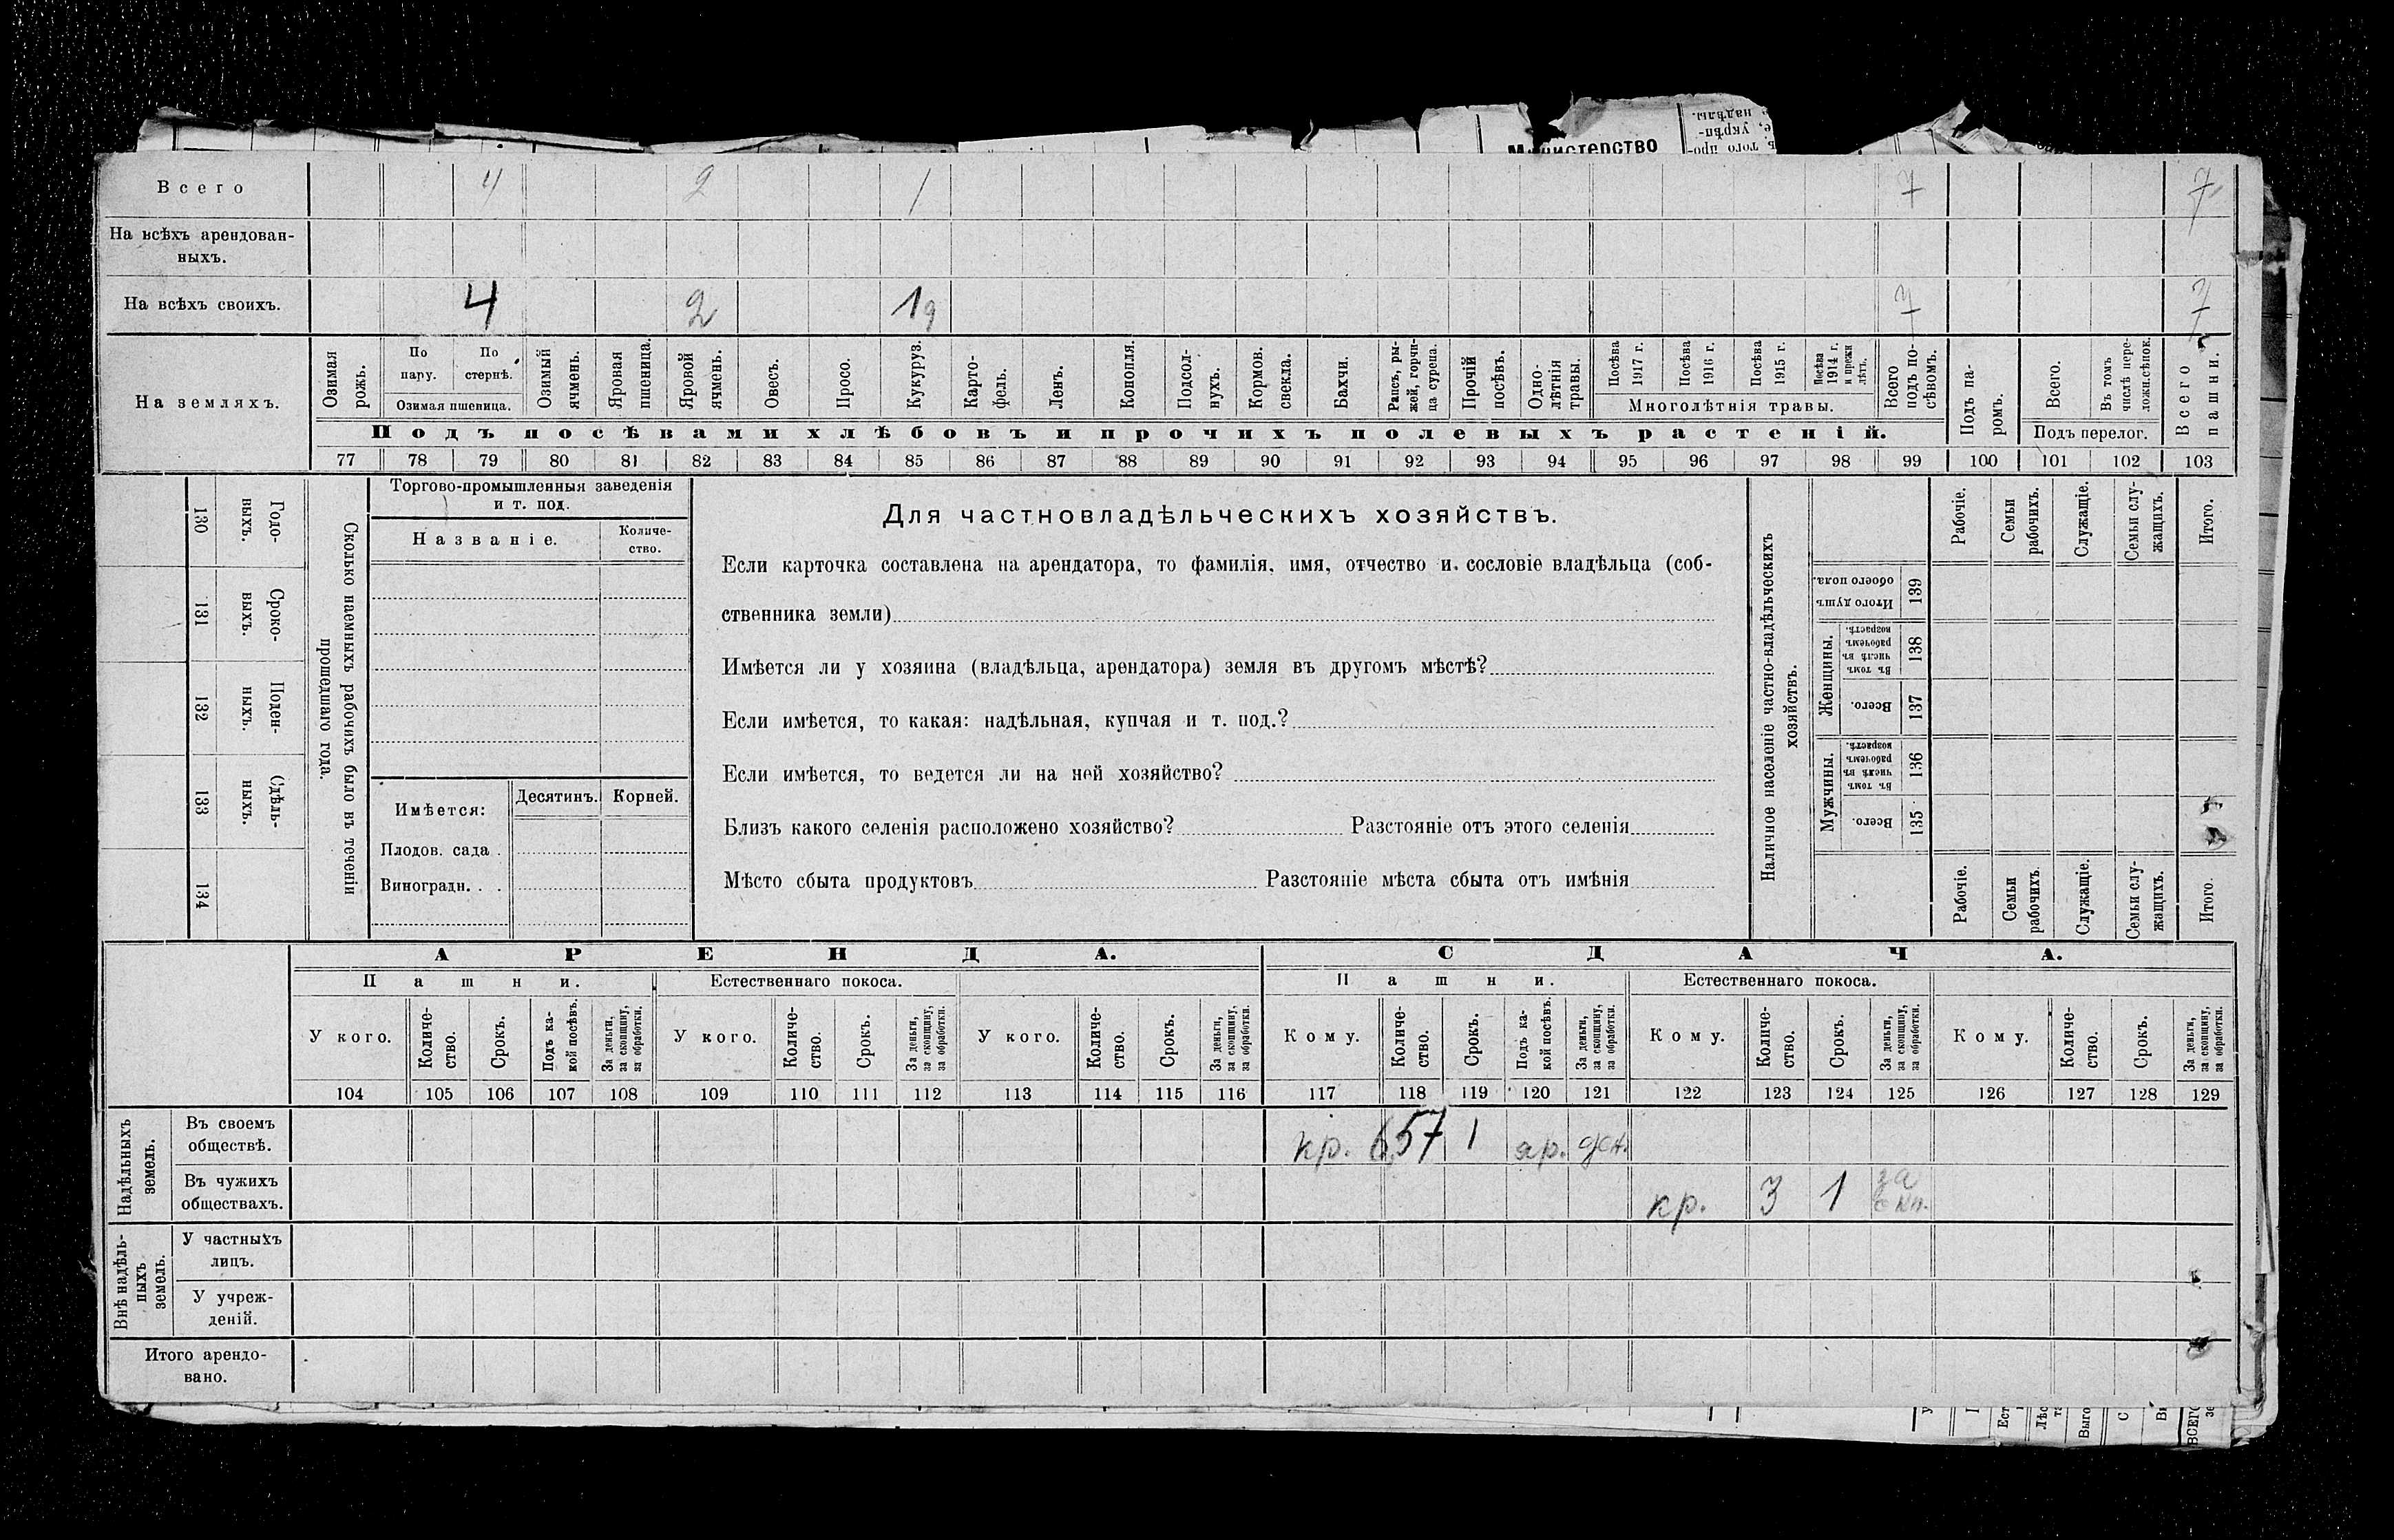 Министерство
Всего 4 2 1 7 7
На всѣхъ арендован-
ныхъ.
На всѣхъ своихъ. 4 2 1 7 7
На земляхъ.
Озимая рожь.
По пару.
По стернѣ.
Озимая пшеница.
Озимый ячмень.
Яровая пшеница.
Яровой ячмень.
Овесъ.
Просо.
Кукуруз.
Карто-
фель.
Ленъ.
Конопля.
Подсол-
нухъ.
Кормов. свекла.
Бахчи.
Рапсъ, ры-
жей, горчи-
ца сурепа.
Прочій посѣвъ.
Одно-
лѣтнія травы.
Посѣва 1917 г.
Посѣва 1916 г.
Посѣва 1915 г.
Посѣва 1914 г. и прежн лѣтъ.
Многолѣтнія травы.
Всего подъ по-
сѣвомъ.
Подъ па-
ромъ.
Всего.
Въ томъ числѣ пере-
ложн.сѣнок.
Подъ перелог.
Всего пашни.
Подъ посѣвами хлѣбовъ и прочихъ полевыхъ растеній.
77 78 79 80 81 82 83 84 85 86 87 88 89 90 91 92 93 94 95 96 97 98 99 100 101 102 103
130 Годо-
ныхъ.
131 Сроко-
выхъ.
132 Поден-
ныхъ.
133 Сдѣль-
ныхъ.
134
Сколько наемныхъ рабочихъ было въ теченіи
прошедшаго года.
Торгово-промышленныя заведенія
и т. под.
Названіе.
Количе-
ство.
Имѣется:
Десятинъ.
Корней.
Плодов. сада .
Виноградн. . .
Для частновладѣльческихъ хозяйствъ.
Если карточка составлена на арендатора, то фамилія, имя, отчество и сословіе владѣльца (соб-
ственника земли)
Имѣется ли у хозяина (владѣльца, арендатора) земля въ другомъ мѣстѣ?
Если имѣется, то какая: надѣльная, купчая и т. под.?
Если имѣется, то ведется ли на ней хозяйство?
Близъ какого селенія расположено хозяйство? Разстояніе отъ этого селенія
Мѣсто сбыта продуктовъ Разстояніе мѣста сбыта отъ имѣнія
Наличное населеніе частно-владѣльческихъ
хозяйствъ.
Рабочіе.
Семьи рабочихъ.
Служащіе.
Семьи слу-
жащихъ.
Итого.
Итого душъ обоего пола. 139
Женщины.
Въ томъ числѣ въ рабочемъ возрастѣ. 138
Всего. 137
Мужчины.
Въ томъ числѣ въ рабочемъ возрастѣ. 136
Всего. 135
Рабочіе.
Семьи рабочихъ.
Служащіе.
Семьи слу-
жащихъ.
Итого.
АРЕНДА. СДАЧА.
Пашни. Естественнаго покоса. Пашни. Естественнаго покоса.
У кого.
Количе-
ство.
Срокъ.
Подъ ка-
кой посѣвъ.
За деньги, за скопщину, за обработки.
У кого.
Количе-
ство.
Срокъ.
За деньги, за скопщину, за обработки.
У кого.
Количе-
ство.
Срокъ.
За деньги, за скопщину, за обработки.
Кому.
Количе-
ство.
Срокъ.
Подъ ка-
кой посѣвъ.
За деньги, за скопщину, за обработки.
Кому.
Количе-
ство.
Срокъ.
За деньги, за скопщину, за обработки.
Кому.
Количе-
ство.
Срокъ.
За деньги, за скопщину, за обработки.
104 105 106 107 108 109 110 111 112 113 114 115 116 117 118 119 120 121 122 123 124 125 126 127 128 129
Надѣльныхъ земель.
Въ своемъ
обществѣ. кр. 6,57 1 яр.
Въ чужихъ
обществахъ. кр. 3 1 за скп.
Внѣ надѣль-
ныхъ земель.
У частныхъ
лицъ.
У учреж-
деній.
Итого арендо-
вано.